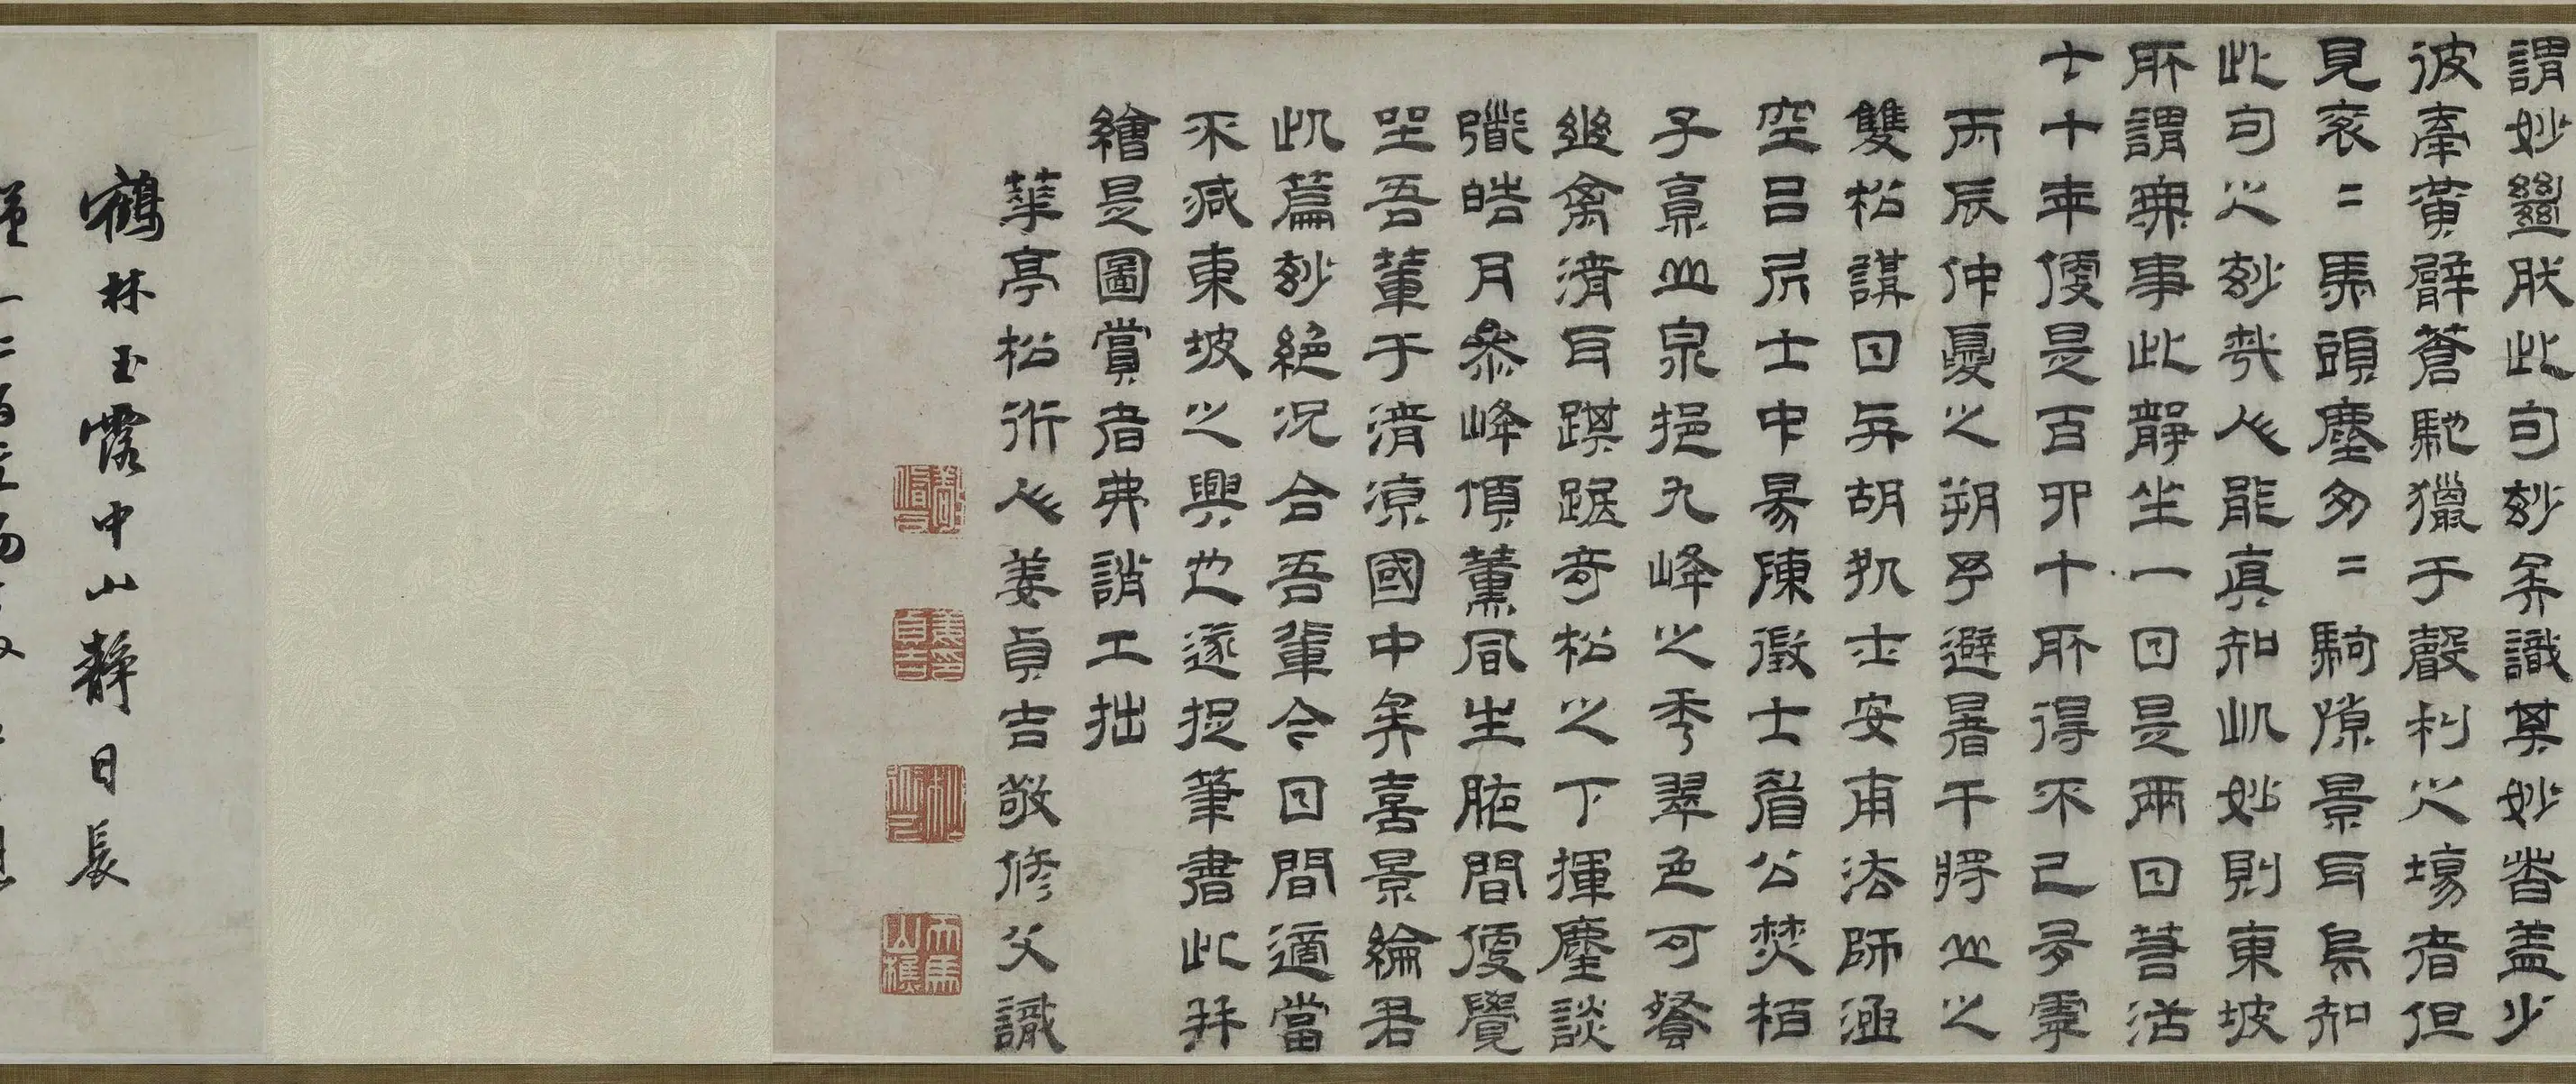 謂妙絲肰此句玅矣識其妙者蓋少
彼牽黃臂蒼馳獵于聲利之場者但
見衮〻馬頭塵匆〻駒隙景耳烏知
此句之玅哉人能真知此妙則東坡
所謂無事此靜坐一日是兩日若活
七十年便是百四十所得不已多乎
丙辰仲夏之朔予避暑干將山之
雙松謀日與胡執士安甫法師涵
空呂居士中昜陳徵士眉公焚栢
子烹山泉挹九峰之秀翠色可餐
幽禽清耳踑踞奇松之下揮麈談
鋒皓月叅峰頂薰風生腋間便覺
坐吾輩于清涼國中矣喜景綸君
此篇玅絕況合吾輩今日間適當
不減東坡之興也遂捉筆書此并
繪是圖賞者弗誚工拙
華亭松術人姜貞吉敬修父識
鶴林玉露中山靜日長